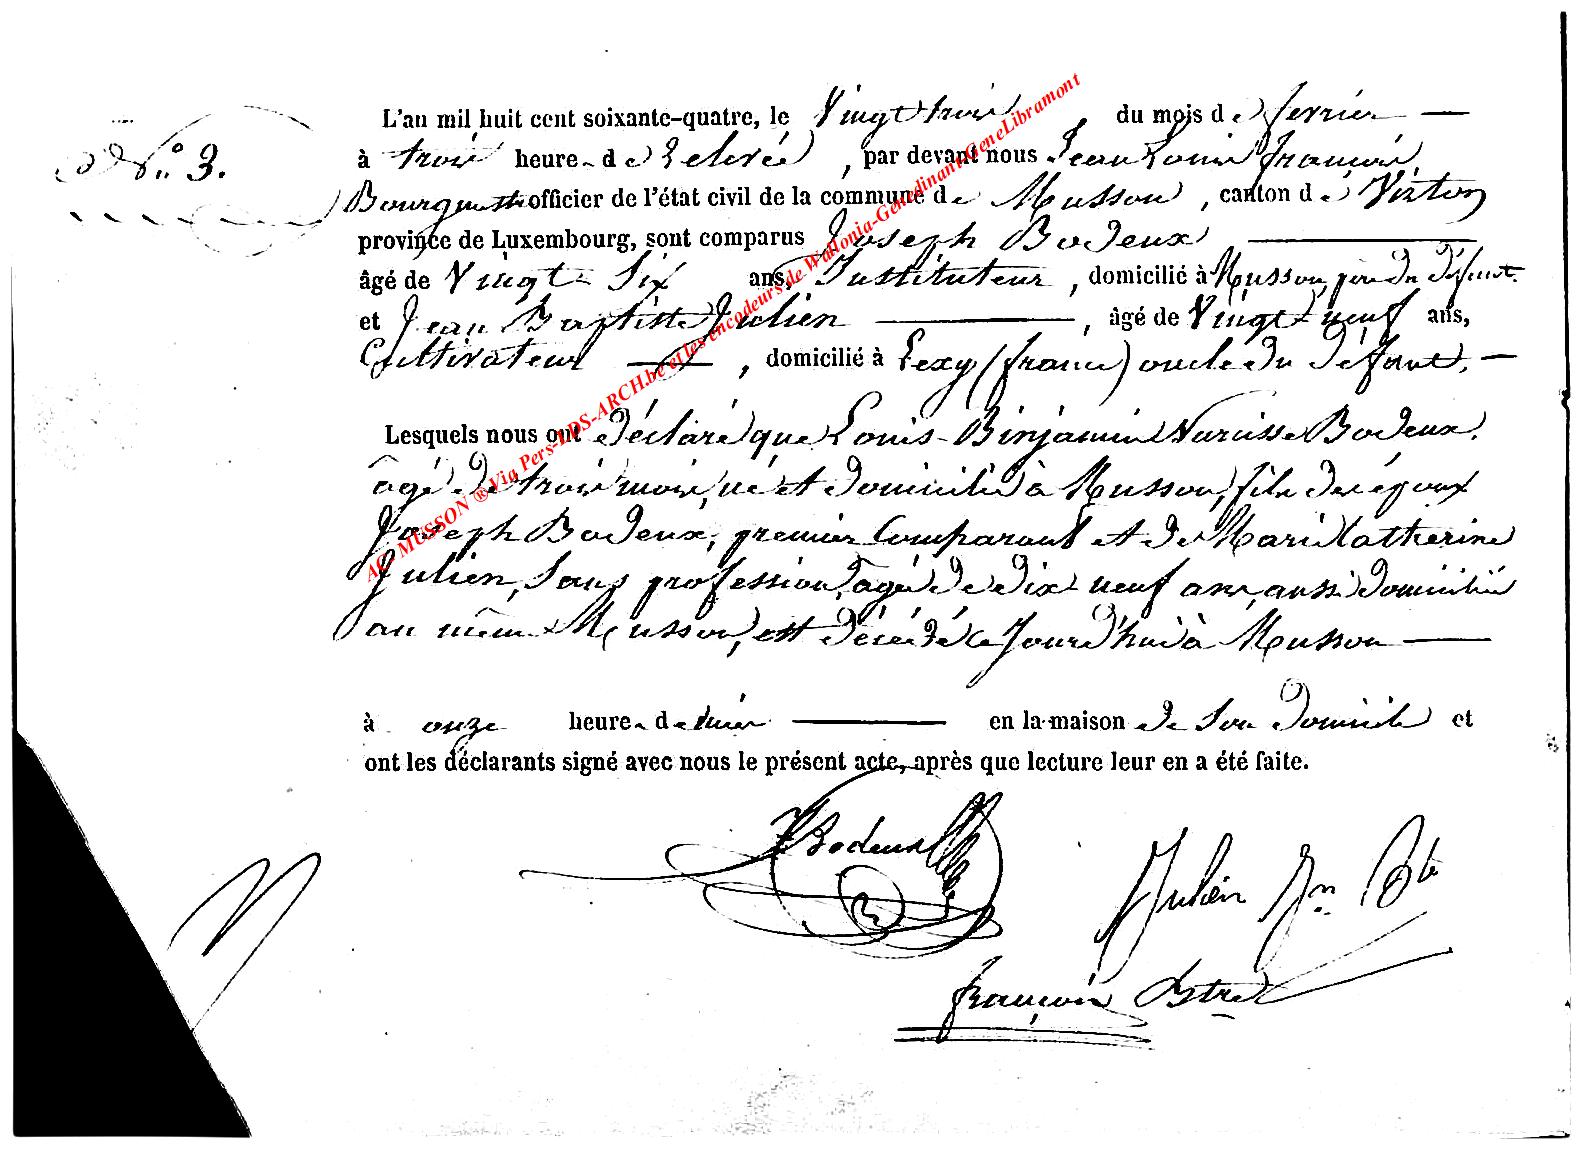 N° 3.
L'an mil huit cent soixante-quatre, le Vingt trois du mois de fevrier
à trois heures de relevée, par devant nous Jean Louis françois
officier de l'état civil de la commune de Musson, canton de Virton
province de Luxembourg, sont comparus Joseph Bodeux
âgé de Vingt Six ans, Instituteur, domicilié à Musson, père du défunt.
et Jean Baptiste Julien, âgé de Vingt-neuf ans,
Cultivateur, domicilié à Lexy (france) oncle du Défunt.
Lesquels nous ont déclaré que Louis-Binjamin Narcisse Bodeux,
âgé de trois mois, né et domicilié à Musson, fils des époux
Joseph Bodeux, premier Comparant et de Marie Catherine
Julien, Sans profession, agée de dix neuf ans, aussi domiciliés
au même Musson, est décédé ce Jourd'hui à Musson
à onze heures du matin en la maison de Son domicile et
ont les déclarants signé avec nous le présent acte, après que lecture leur en a été faite.
JBodeux
Julien Jn Bte
françois
AC MUSSON ® Via Pers-LDS-ARCH.be et les encodeurs de Wallonia-Genedinant-GeneLibramont